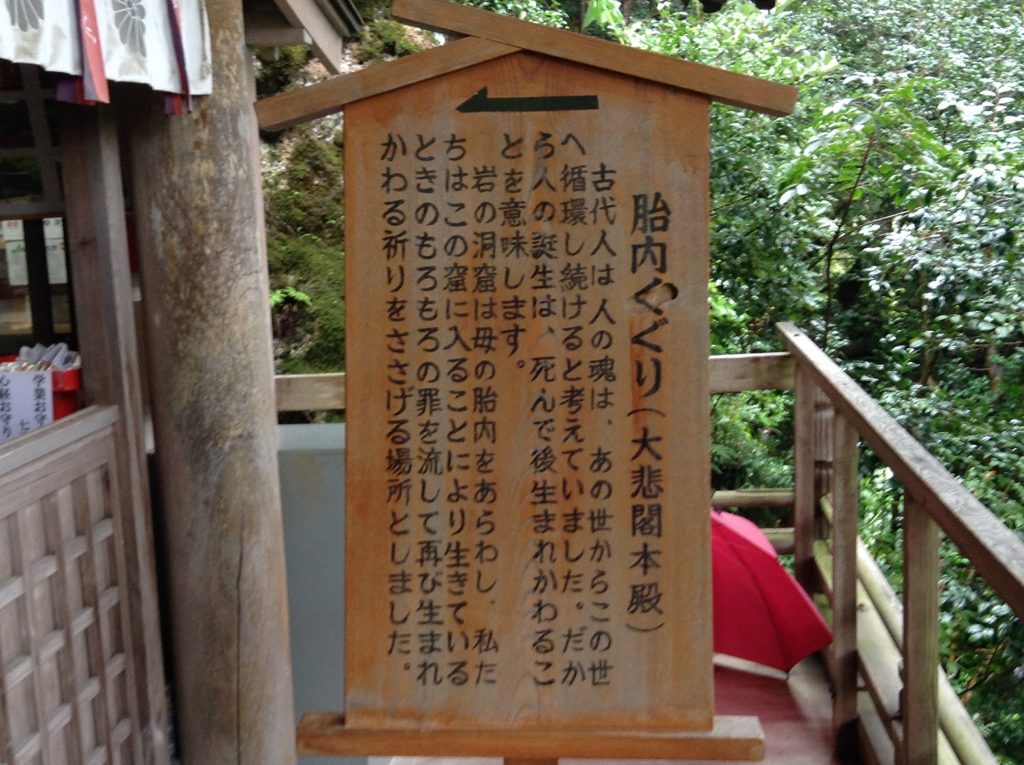 胎内くぐり(大悲閣本殿)
古代人は人の魂は、あの世からこの世
へ循環し続けると考えていました。だか
ら人の誕生は、死んで後生まれかわるこ
とを意味します。
岩の洞窟は母の胎内をあらわし、私た
ちはこの窟に入ることにより生きている
ときのもろもろの罪を流して再び生まれ
かわる祈りをささげる場所としました。
学業お守
心経お守り